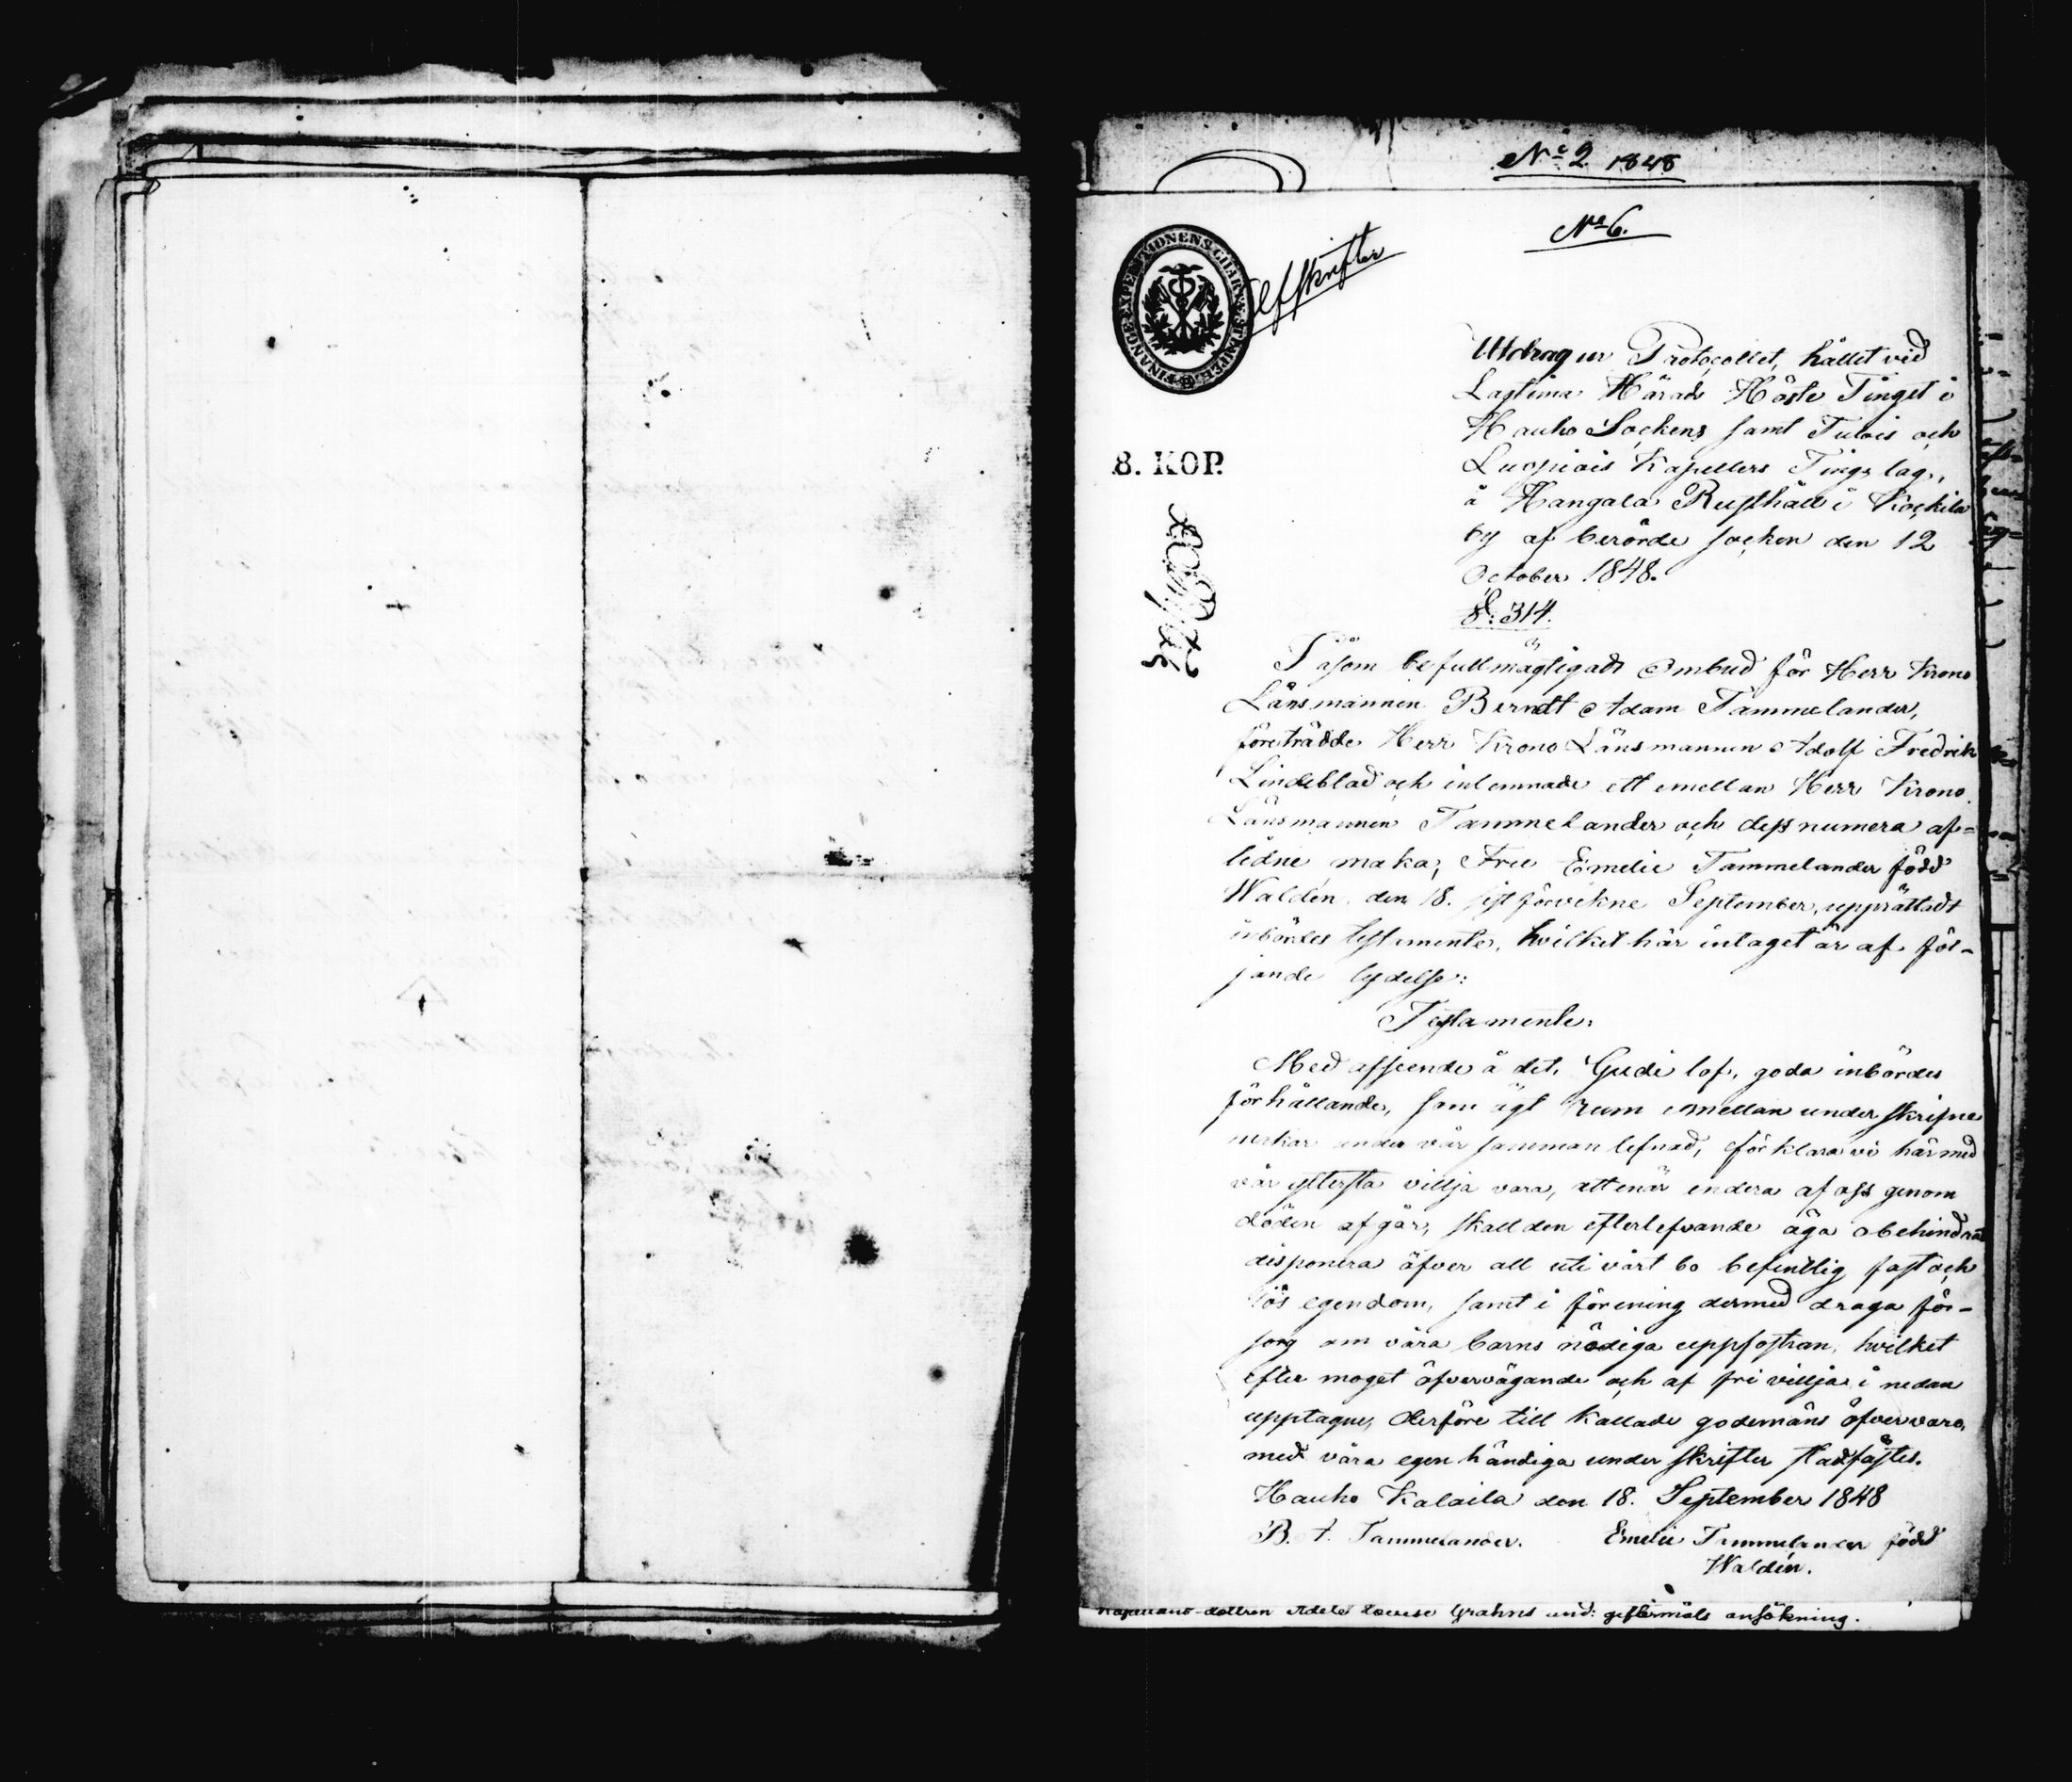 No 2 1848
No 6.
Afskrifter
FINANCE-EXPEDITIONENS CHARTÆ STÄMPEL
8. KOP.
Utdrag ur Protocollet, hållet vid
Lagtima Härads Höste Tinget i
Hauho Sockens samt Tulois och
Luopiois Kapellers Tings lag,
å Hangala Rusthåll i Kockila
by af berörde socken den 12
October 1848.
§: 314.
Såsom befullmägtigadt Ombud för Herr Krono
Länsmannen Berndt Adam Tammelander,
företrädde Herr Krono Länsmannen Adolf Fredrik
Lindeblad och inlemnade ett emellan Herr Krono
Länsmannen Tammelander och dess numera af=
lidne maka, Fru Emelie Tammelander född
Waldén den 18. sist förvikne September, upprättadt
inbördes testamente, hvilket här intaget är af föl-
jande lydelse:
Testamente:
Med afseende å det, Gudi lof, goda inbördes
förhållande, som ägt rum emellan underskrifne
makar under vår sammanlefnad, förklara vi härmed
vår yttersta villja vara, att enär endera af oss genom
döden afgår, skall den efterlefvande äga obehindradt
disponera öfver all uti vårt bo befintlig fast och
lös egendom, samt i förening dermed draga för-
sorg om våra barns nödiga uppfostran, hvilket
efter moget öfvervägande och af fri villja i nedan
upptagne, derföre till kallade godemäns öfvervaro,
med våra egenhändiga underskrifter stadfästes.
Hauho Kalaila den 18. September 1848
B. A. Tammelander. Emelie Tammelander född
Waldén.
dottren Adele Lovise Grahns und: giftermåls ansökning.